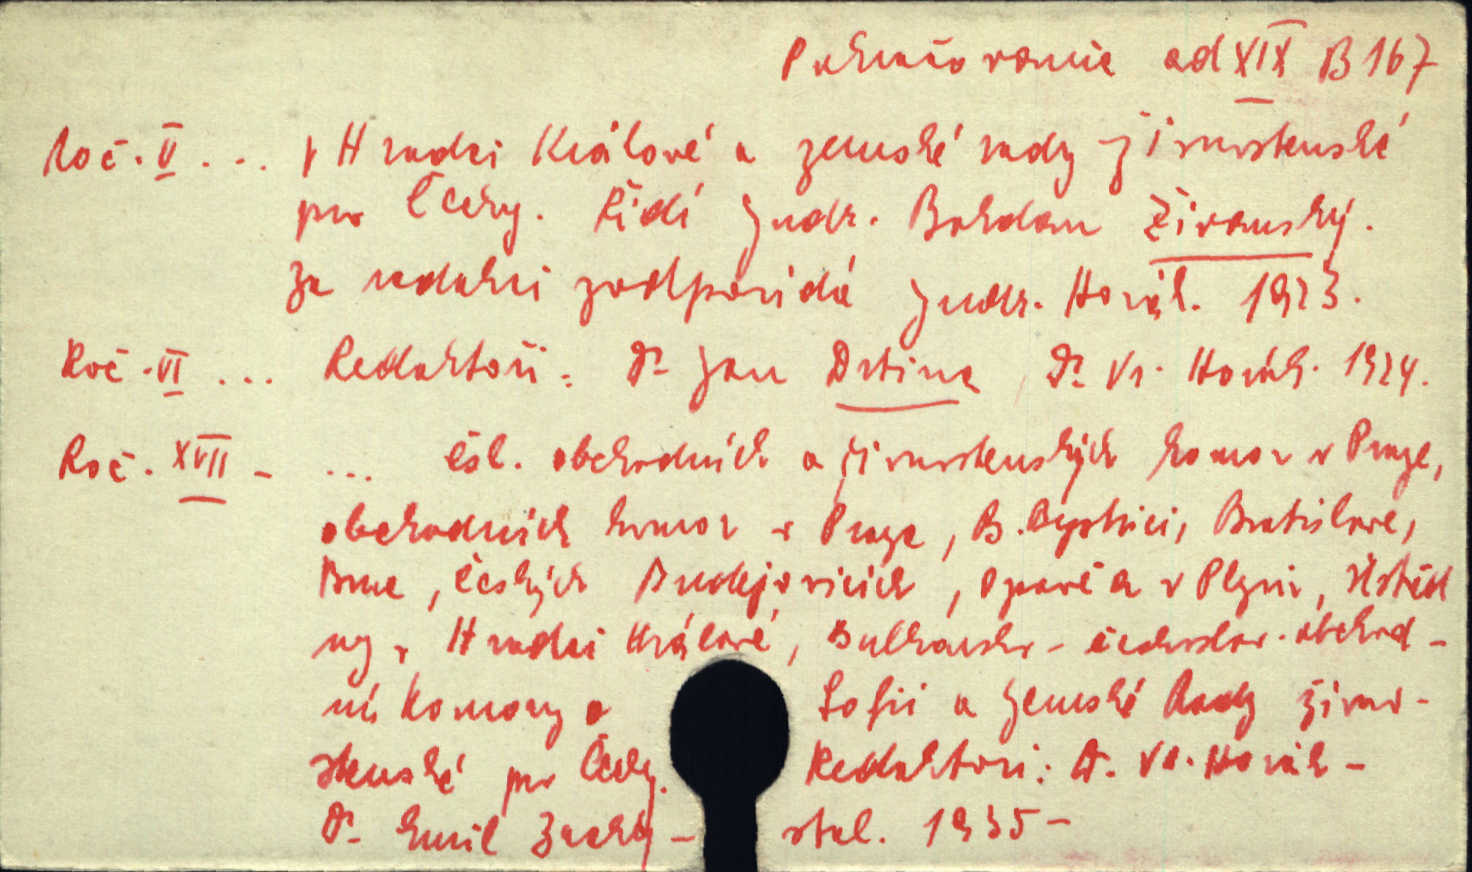 Pokračování ad XIX B 167
Roč. V ... v Hradci Králové a zemské rady živnostenské
pro Čechy. Řídí Judr. Bohdan Živanský.
Za redakci zodpovídá Judr. Horák. 1923.
Roč. VI ... Redaktoři: Dr. Jan Drtina, Dr. Vr. Horák. 1924.
Roč. XVII - ... čsl. obchodních a živnostenských komor v Praze,
obchodních komor v Praze, B. Bystrici, Bratislavě,
Brně, Českých Budějovicích, Opavě a v Plzni, Ústřed
ny v Hradci Králové, Bulharsko-českoslov. obchod-
ní komory v Sofii a Zemské Rady živno-
stenské pro Čechy. Redaktoři: Dr. Vr. Horák -
Dr. Emil Zachý - stal. 1935 -